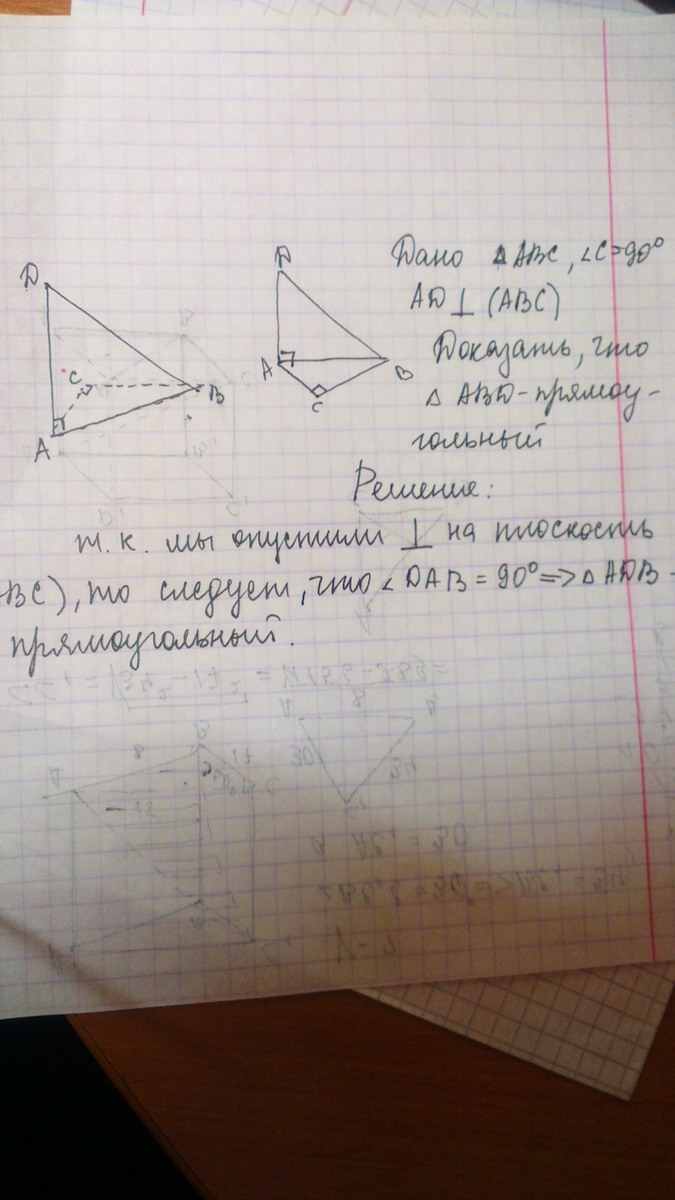 D
C
B
A
D
A
B
C
Дано △ABC, ∠C=90°
AD⊥(ABC)
Доказать, что
△ ABD-прямоу-
гольный
Решение:
т.к. мы опустили ⊥ на плоскость
BC), то следует, что ∠DAB = 90°=>△ADB -
прямоугольный.